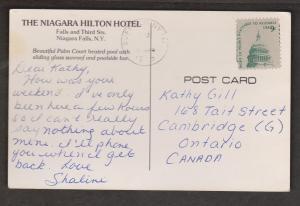 THE NIAGARA HILTON HOTEL
Falls and Third Sts.
Niagara Falls, N.Y.
Beautiful Palm Court heated pool with
sliding glass sunroof and poolside bar.
Dear Kathy,
How was your
weekend? I've only
been here a few hours
so I can't really
say nothing about
mine. I'll phone
you when I get
back. Love
Shaline
POST CARD
Kathy Gill
168 Tait Street
Cambridge (G)
Ontario
CANADA